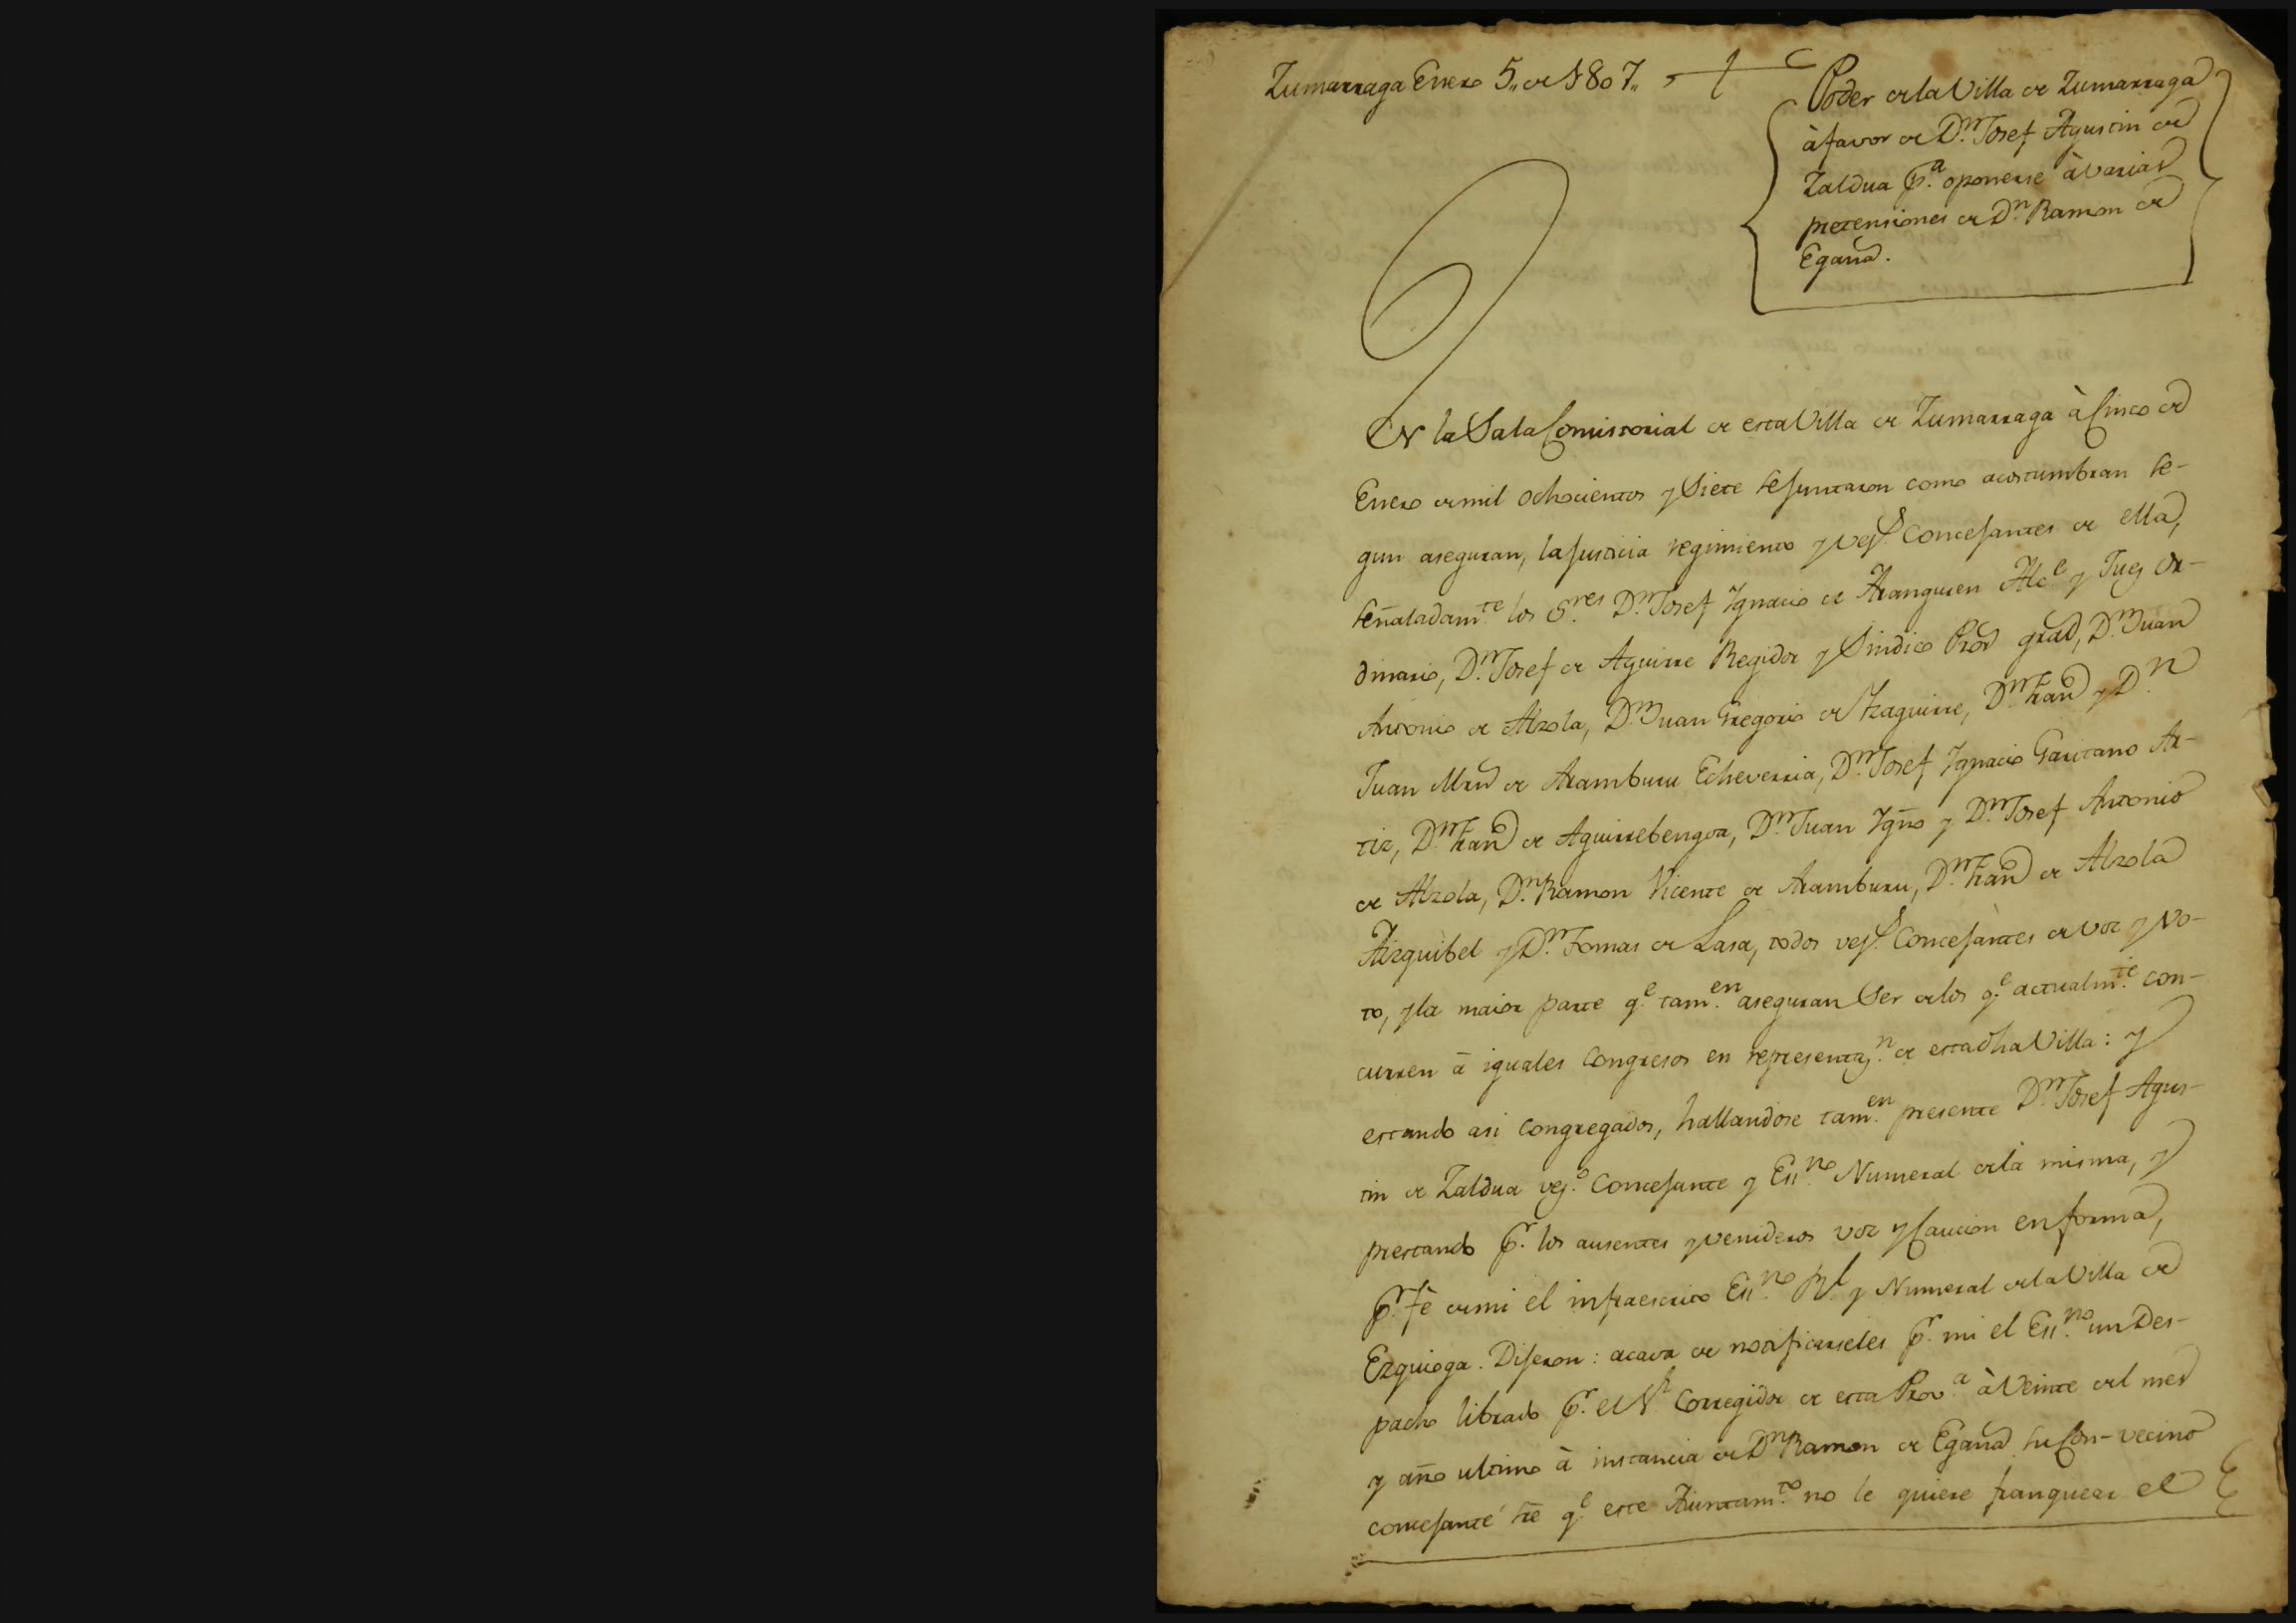 Zumarraga Enero 5,, de 1807,,
Poder de la Villa de Zumarraga
à favor de Dn. Josef Agustin de
Zaldua pa. oponerse à varias
pretensiones de Dn. Ramon de
Egaña.
En la Sala Consistorial de esta Villa de Zumarraga à Cinco de
Enero de mil ochocientos y Siete se juntaron como acostumbran se-
gun aseguran, la justicia regimiento y vezs. Concejantes de ella,
señaladamte. los Sres. Dn. Josef Ignacio de Aranguren Alce. y Juez or-
dinario, Dn. Josef de Aguirre Regidor y Sindico Pror gral, Dn. Juan
Antonio de Alzola, Dn. Juan Gregorio de Yzaguirre, Dn. Fran y Dn.
Juan Mrn de Aramburu Echeverria, Dn. Josef Ignacio Garitano Ar-
tiz, Dn. Fran de Aguirrebengoa, Dn. Juan Ygno y Dn. Josef Antonio
de Alzola, Dn. Ramon Vicente de Aramburu, Dn. Fran de Alzola
Aizquibel y Dn. Tomas de Lasa, todos vezs. Concejantes de voz y vo-
to, y la maior parte qe. tamen. aseguran Ser de los qe. actualmte. con-
curren à iguales Congresos en representazn. de esta dha Villa: y
estando asi Congregados, hallandose tamen. presente Dn. Josef Agus-
tin de Zaldua vezo. Concejante y Essno. Numeral de la misma, y
prestando pr. los ausentes y venideros voz y Caucion en forma,
pr. fè de mi el infraescrito Essno. Rl. y Numeral de la Villa de
Ezquioga. Dijeron: acava de notificarseles pr. mi el Essno. un Des-
pacho librado pr. el Sr. Corregidor de esta Prova. à Veinte del mes
y año ultimo à instancia de Dn. Ramon de Egaña su Con-vecino
concejante sre qe. este Aiuntamto. no le quiere franquear el